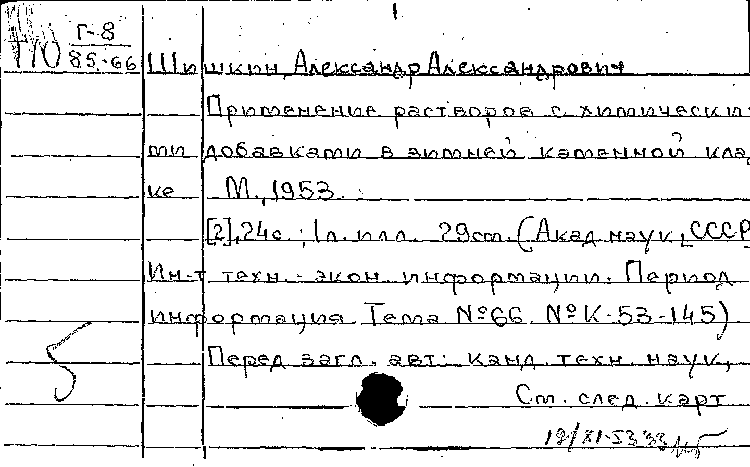 Г-8
85-66
Шишкин, Александр Александрович
Применение растворов с химически
ми добавками в зимней каменной клад
ке М., 1953.
[2], 24с.; 1л. илл. 29см. (Акад. наук СССР
Ин-т техн.-экон. информации. Период
информация Тема №66 №К-53-145)
Перед загл. авт: канд. техн. наук,
См. след. карт